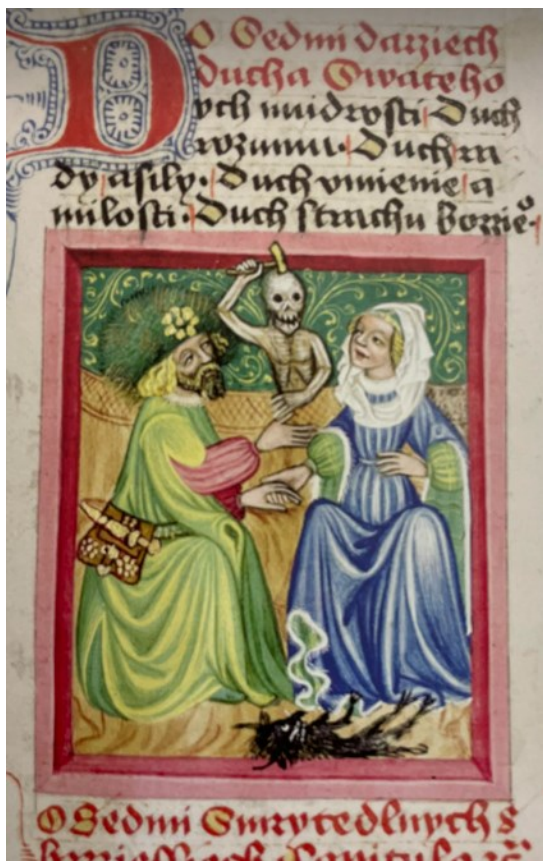 O Sedmi darziech
ducha Swateho
Duch mudrosti Duch
rozumu Duch ra
dy, a sily. Duch vmienie a
milosti. Duch strachu bozzie°.
O Sedmi Smrtedlnych